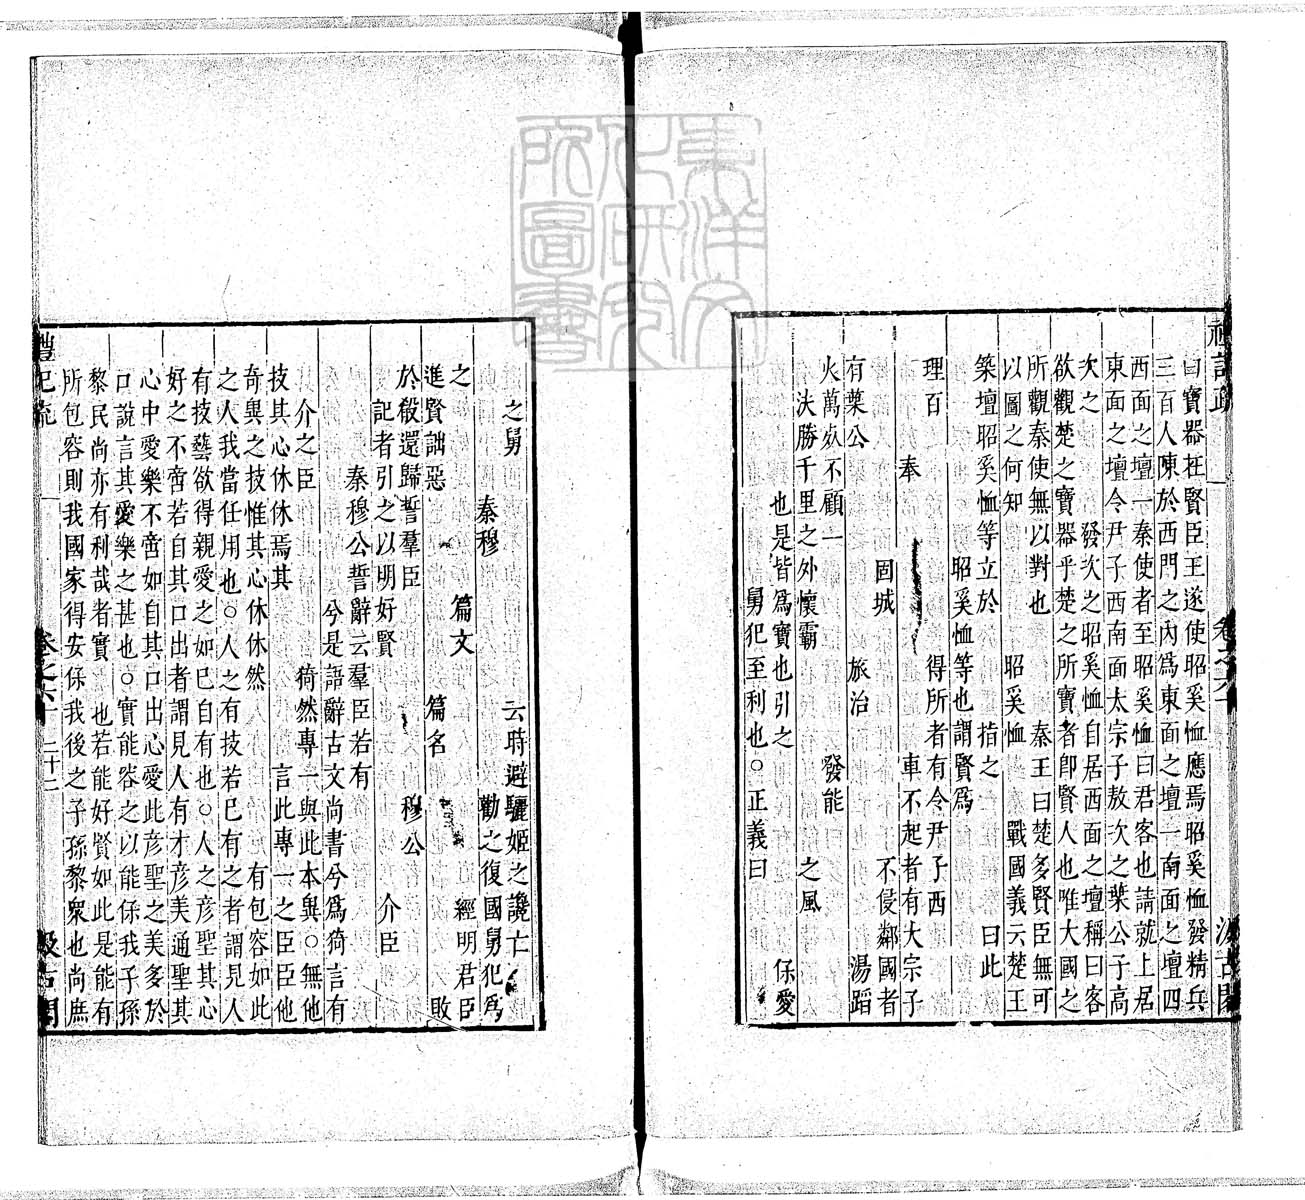 曰寶器在賢臣王遂使昭奚恤應焉昭奚恤發精兵
三百人陳於西門之內爲東面之壇一南面之壇四
西面之壇一秦使者至昭奚恤曰君客也請就上居
東面之壇令尹子西南面太宗子敖次之葉公子高
次之 發次之昭奚恤自居西面之壇稱曰客
欲觀楚之寶器乎楚之所寶者卽賢人也唯大國之
所觀秦使無以對也 秦王曰楚多賢臣無可
以圖之何知 昭奚恤 戰國義云楚王
築壇昭奚恤等立於 指之 曰此
昭奚恤等也謂賢爲
理百 得所者有令尹子西
奉 車不起者有大宗子
固城 不侵鄰國者
有葉公 旅治 湯蹈
火萬死不顧一 發能
決勝千里之外懷霸 之風
也是皆爲寶也引之 保愛
舅犯至利也○正義曰
之舅 云時避驪姬之讒亡
秦穆 勸之復國舅犯爲
之 篇文 經明君臣
進賢詘惡 篇名 敗
於殽還歸誓羣臣 穆公
記者引之以明好賢 介臣
秦穆公誓辭云羣臣若有
兮是語辭古文尚書兮爲猗言有
介之臣 猗然專一與此本異○無他
技其心休休焉其 言此專一之臣臣他
奇異之技惟其心休休然 有包容如此
之人我當任用也○人之有技若已有之者謂見人
有技藝欲得親愛之如已自有也○人之彦聖其心
好之不啻若自其口出者謂見人有才彦美通聖其
心中愛樂不啻如自其口出心愛此彦聖之美多於
口說言其愛樂之甚也○實能容之以能保我子孫
黎民尚亦有利哉者實 也若能好賢如此是能有
所包容則我國家得安保我後之子孫黎衆也尚庶
禮記疏 卷之六十 二十二 汲古閣
東洋文化研究所圖書